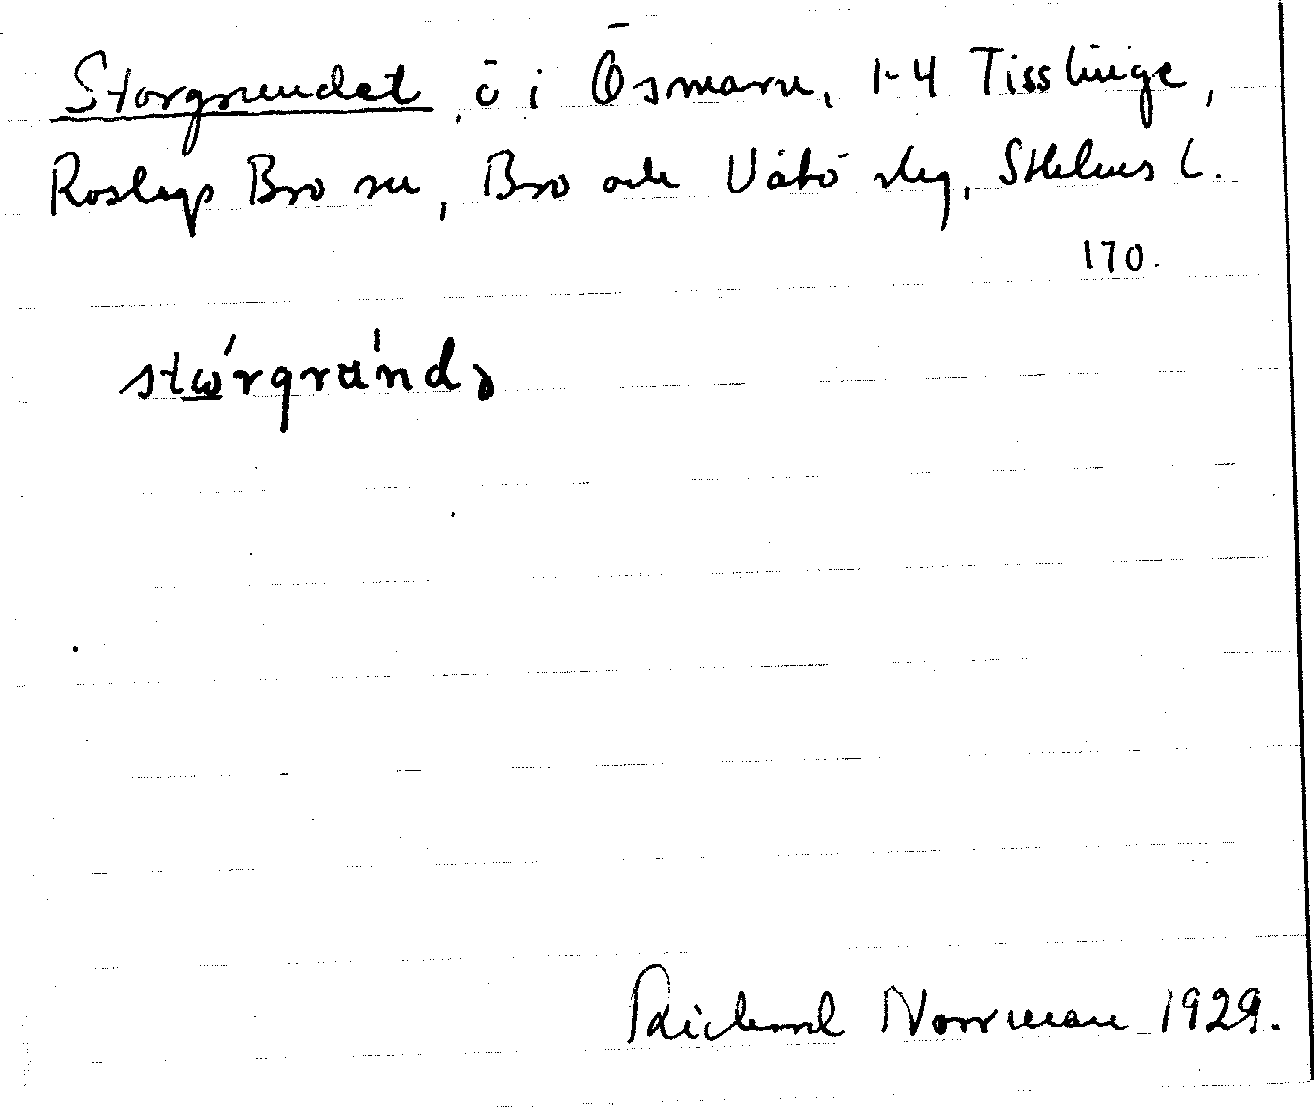 Storgrundet, ö i Ösmaren, 1-4 Tisslinge,
Roslags Bro sn, Bro och Vätö skg, Sthlms l.
170.
stώrgrʉ́ndə
Rickard Norrman 1929.